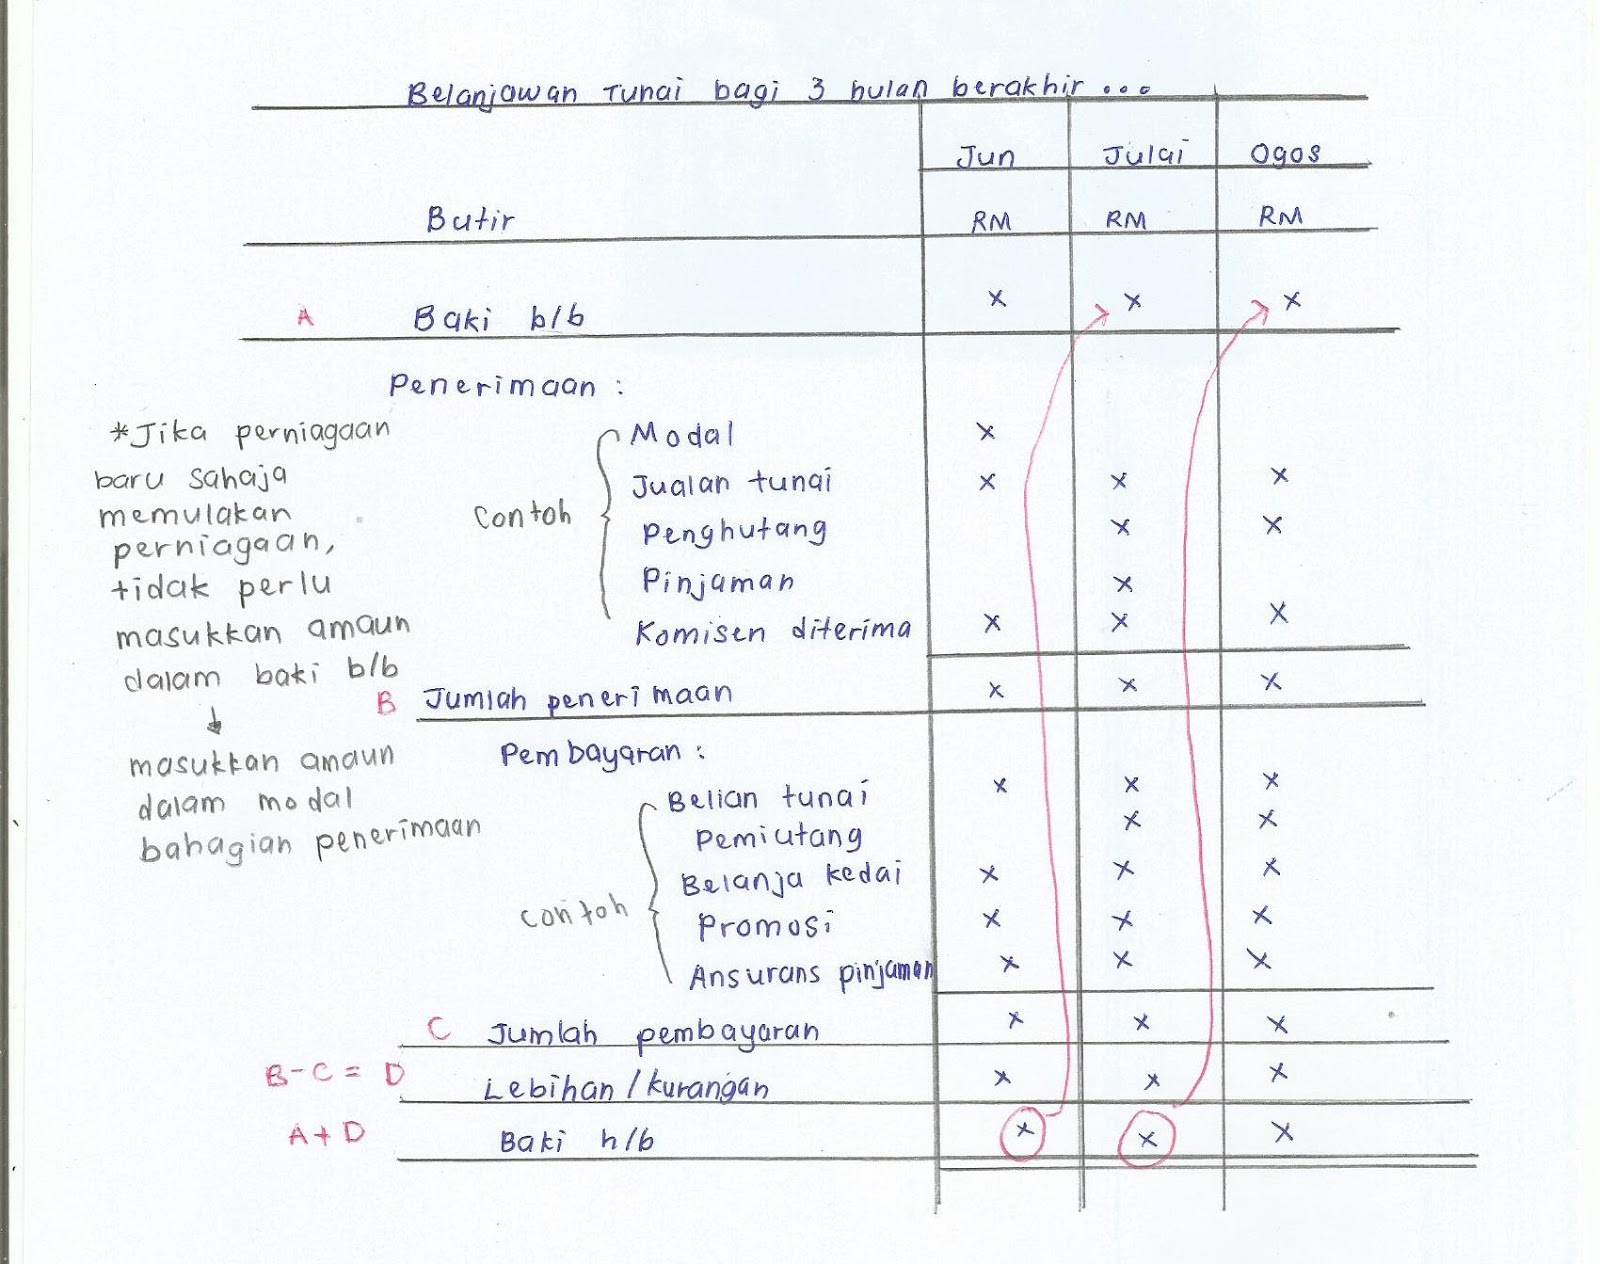 Belanjawan Tunai bagi 3 bulan berakhir ...
Jun Julai Ogos
Butir RM RM RM
A Baki b/b x x x
Penerimaan :
*Jika perniagaan
baru sahaja
memulakan
perniagaan,
tidak perlu
masukkan amaun
dalam baki b/b
↓
masukkan amaun
dalam modal
bahagian penerimaan
Contoh
Modal x
Jualan tunai x x x
Penghutang x x
Pinjaman x
Komisen diterima x x x
B Jumlah penerimaan x x x
Pembayaran :
Contoh
Belian tunai x x x
Pemiutang x x
Belanja kedai x x x
Promosi x x x
Ansurans pinjaman x x x
C Jumlah pembayaran x x x
B-C = D Lebihan/kurangan x x x
A+D Baki h/b x x x